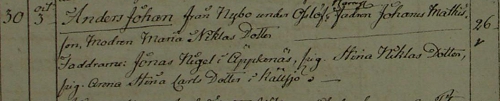 30 oct 3 Anders Johan, från Nybo under Opslöf, Fadren Johans Mathis 26
son, Modren Maria Niklas Dotter
Faddrarne: Jonas Nigel i Äppkenäs, pig. Stina Niklas Dotter,
pig. Anna Stina Carls Dotter i Källsjö